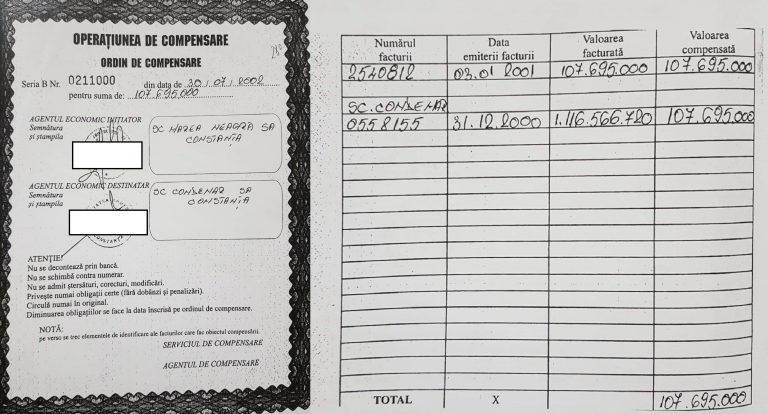 OPERAŢIUNEA DE COMPENSARE
ORDIN DE COMPENSARE
Seria B Nr. 0211000 din data de 30.07.2002
pentru suma de: 107.695.000
AGENTUL ECONOMIC INIŢIATOR
Semnătura
şi ştampila
SC MAREA NEAGRĂ SA
CONSTANŢA
AGENTUL ECONOMIC DESTINATAR
Semnătura
şi ştampila
SC CONDENAR SA
CONSTANŢA
ATENŢIE!
Nu se decontează prin bancă.
Nu se schimbă contra numerar.
Nu se admit ştersături, corecturi, modificări.
Priveşte numai obligaţii certe (fără dobânzi şi penalizări).
Circulă numai în original.
Diminuarea obligaţiilor se face la data înscrisă pe ordinul de compensare.
NOTĂ:
pe verso se trec elementele de identificare ale facturilor care fac obiectul compensării.
SERVICIUL DE COMPENSARE
AGENTUL DE COMPENSARE
Numărul facturii Data emiterii facturii Valoarea facturată Valoarea compensată
2540812 03.01 2001 107.695.000 107.695.000
SC.CONDENAR
0558155 31.12.2000 1.116.566.720 107.695.000
TOTAL X 107.695.000